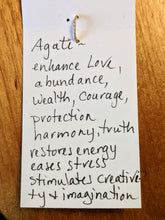 Agate ~
enhance Love,
abundance,
Wealth, Courage,
protection
harmony, truth
restores energy
eases stress
stimulates creative-
ty & imagination